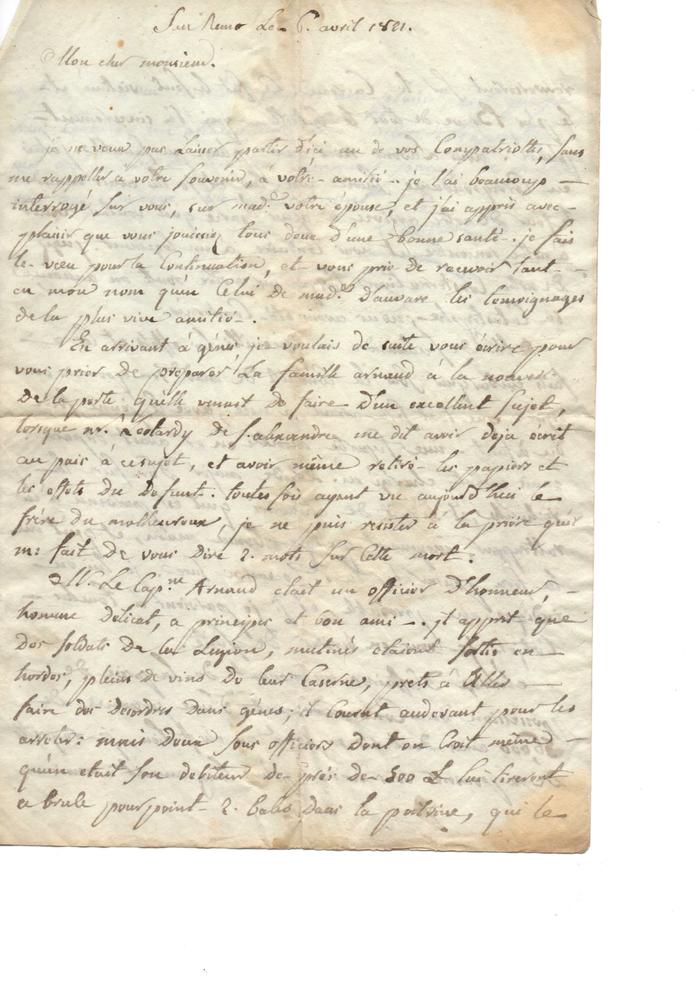 San Remo Le 6. avril 1821.
Mon cher monsieur.
je ne veux pas laisser partir d'ici un de vos Compatriottes, sans
me rappeller à votre souvenir, à votre amitié. je l'ai beaucoup
interrogé sur vous, sur mad.e votre épouse, et j'ai appris avec
plaisir que vous jouissiez tous deux d'une bonne santé. je fais
le vœu pour la Continuation, et vous prie de recevoir tant
en mon nom qu'en Celui de mad.e D'auvare les temoignages
de la plus vive amitié.
En arrivant à gênes, je voulais de suite vous écrire pour
vous prier de préparer La famille arnaud à la nouvelle
De la perte quelle venait de faire D'un excellent sujet,
lorsque mr. de S. alexandre me dit avoir deja écrit
au païs à ce sujet, et avoir même retiré les papiers et
les effets du Defunt. toutes fois ayant vu aujourd'hui le
frère du malheureux, je ne puis resister à la prière qu'il
m: fait de vous Dire 2. mots sur Cette mort.
Mr. Le Cap.ne Arnaud était un officier D'honneur,
homme délicat, a principes et bon ami. il apprit que
Des soldats De la Legion, mutinés étaient sortis en
hordes, pleins de vins De leur Caserne, prets à
faire des Desordres Dans gênes; il Courut audevant pour les
arreter: mais Deux sous officiers Dont on Croit même
qu'un etait son debiteur de près de 500 lui tirerent
a brule pourpoint 2. bales Dans la poitrine, qui le